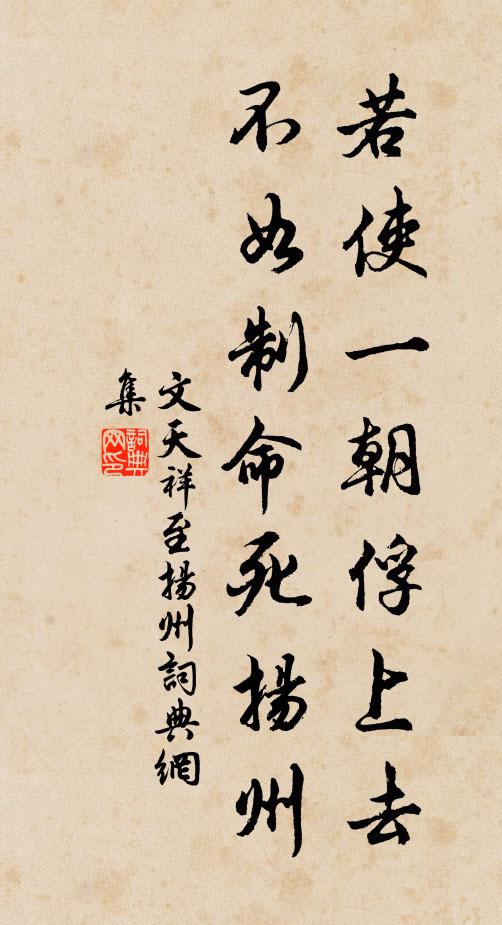 若使一朝俘上去
不如制命死揚州
文天祥至揚州詞典網
集
詞典
网印